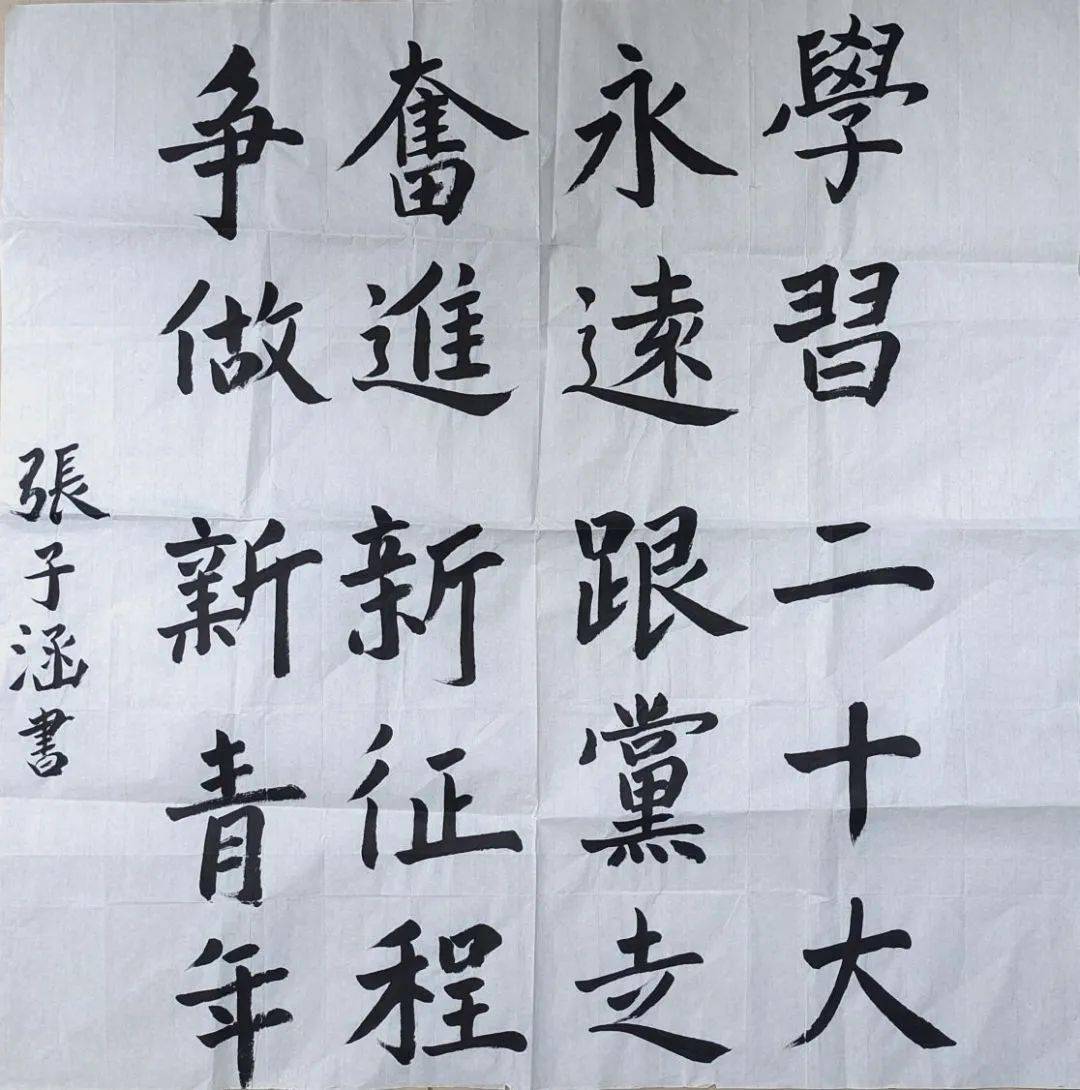 學習二十大
永遠跟黨走
奮進新征程
争做新青年
張子涵書